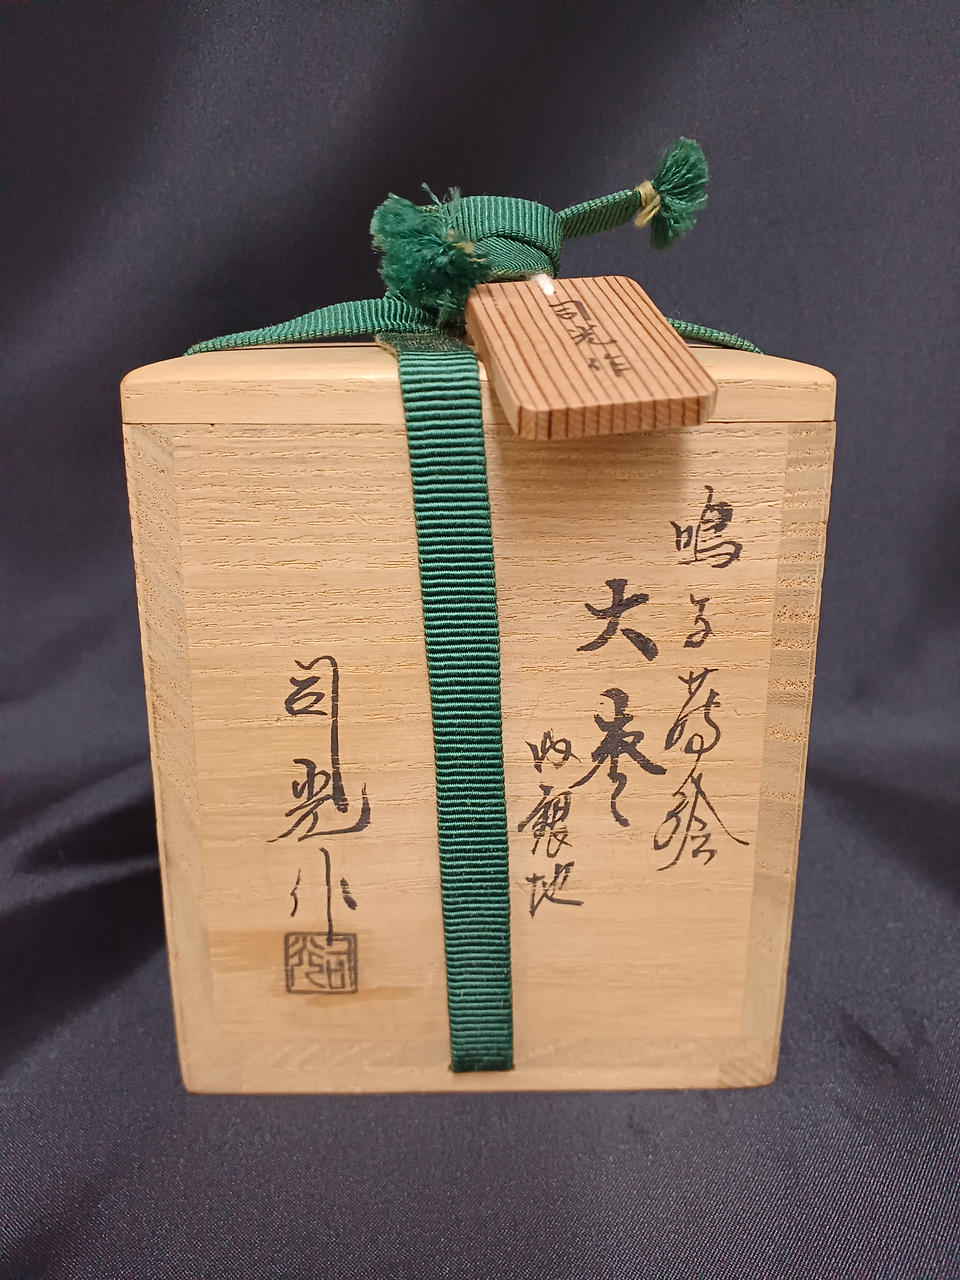 鳴子蒔絵
大棗
内銀地
司光作
司光
司光作